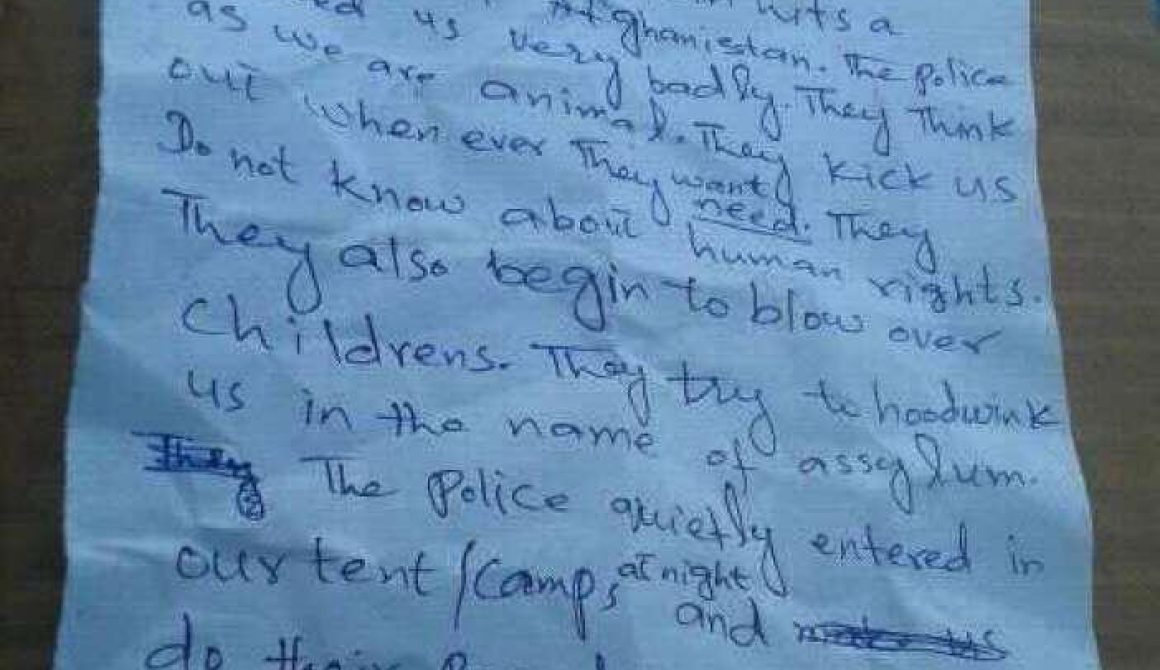 us very badly. They think
as we are animal. They kick us
out when ever they want need. They
Do not know about human rights.
They also begin to blow over
childrens. They try to hoodwink
us in the name of assylum.
The police quietly entered in
our tent/camps at night and
do their